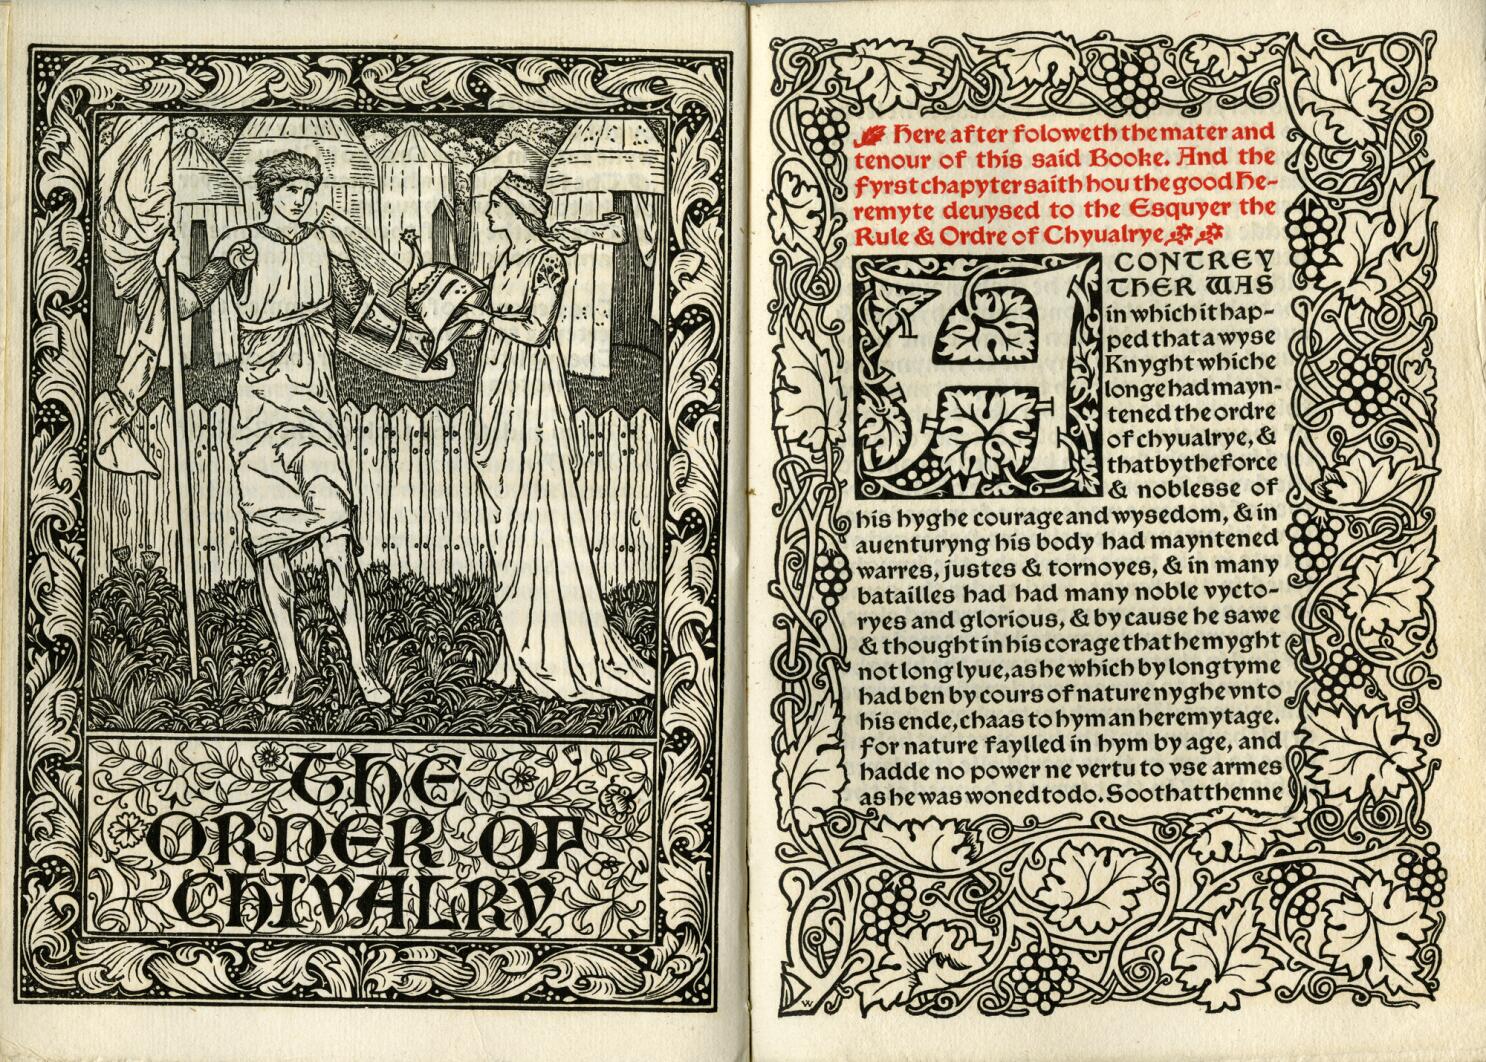 THE
ORDER OF
CHIVALRY
Here after foloweth the mater and
tenour of this said Booke. And the
fyrst chapyter saith hou the good He-
remyte deuysed to the Esquyer the
Rule & Ordre of Chyualrye
A CONTREY
THER WAS
in which it hap-
ped that a wyse
Knyght whiche
longe had mayn-
tened the ordre
of chyualrye, &
that by the force
& noblesse of
his hyghe courage and wysedom, & in
auenturyng his body had mayntened
warres, justes & tornoyes, & in many
batailles had had many noble vycto-
ryes and glorious, & by cause he sawe
& thought in his corage that he myght
not long lyue, as he which by long tyme
had ben by cours of nature nyghe vnto
his ende, chaas to hym an heremytage.
For nature faylled in hym by age, and
hadde no power ne vertu to vse armes
as he was woned to do. Soo that thenne
W